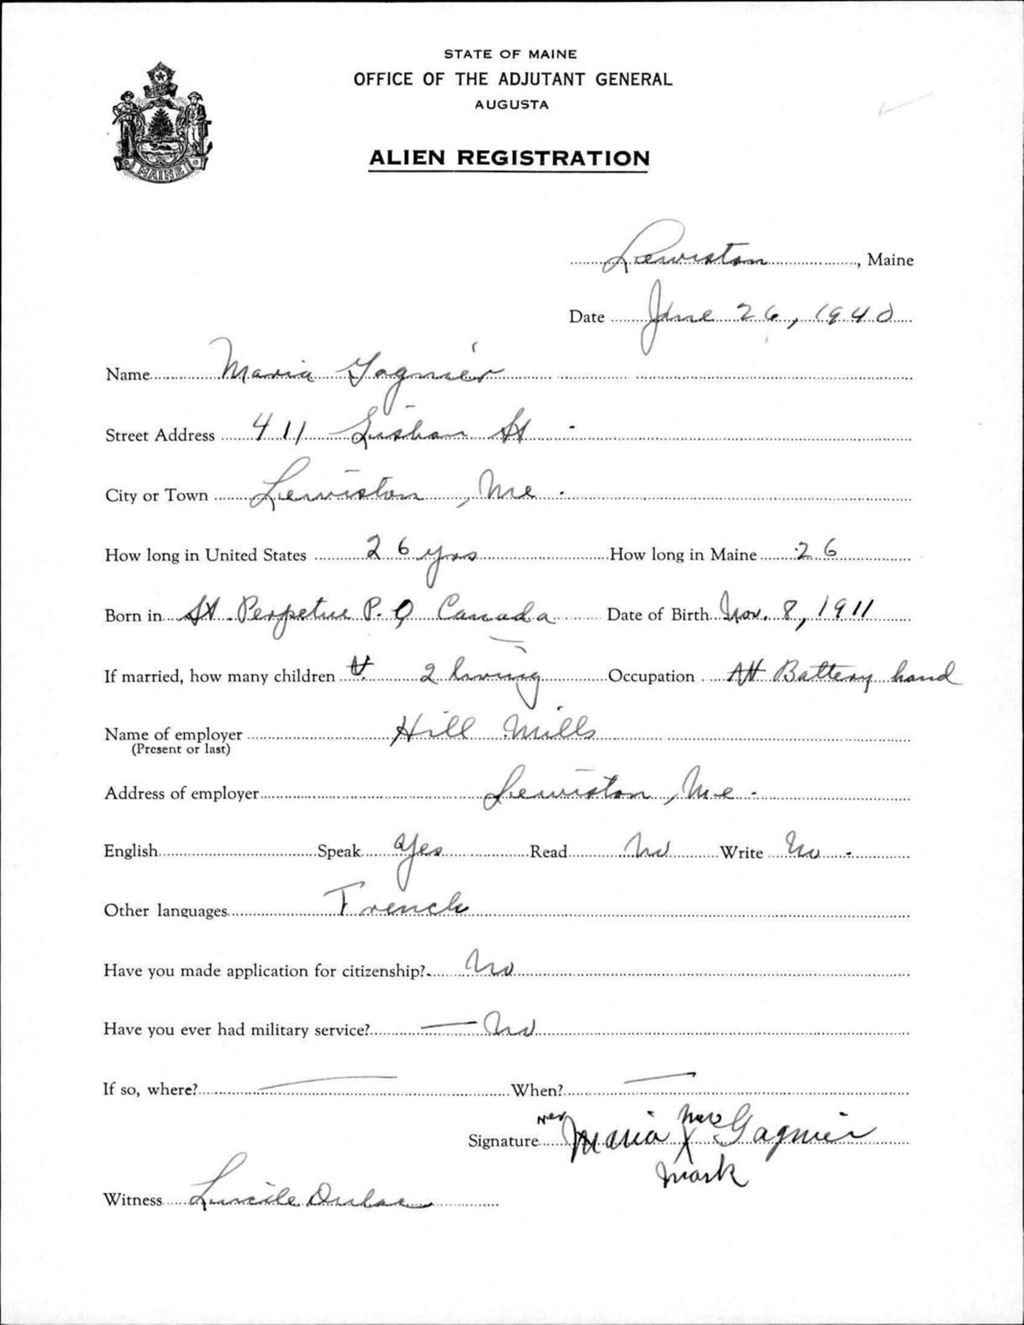 STATE OF MAINE
OFFICE OF THE ADJUTANT GENERAL
AUGUSTA
ALIEN REGISTRATION
MAINE
Lewiston, Maine
Date June 26, 1940
Name Maria Gagnier
Street Address 411 Lisbon St
City or Town Lewiston, Me.
How long in United States 26 yrs How long in Maine 26
Born in St. Perpetue P. Q Canada Date of Birth Nov. 8, 1911
If married, how many children 2 living Occupation Battery hand
Name of employer Hill Mills
(Present or last)
Address of employer Lewiston, Me.
English Speak Yes Read No Write No.
Other languages French
Have you made application for citizenship? No
Have you ever had military service? — No
If so, where? — When? —
Signature Her Maria X Gagnier
mark
Witness Lucile Dulac